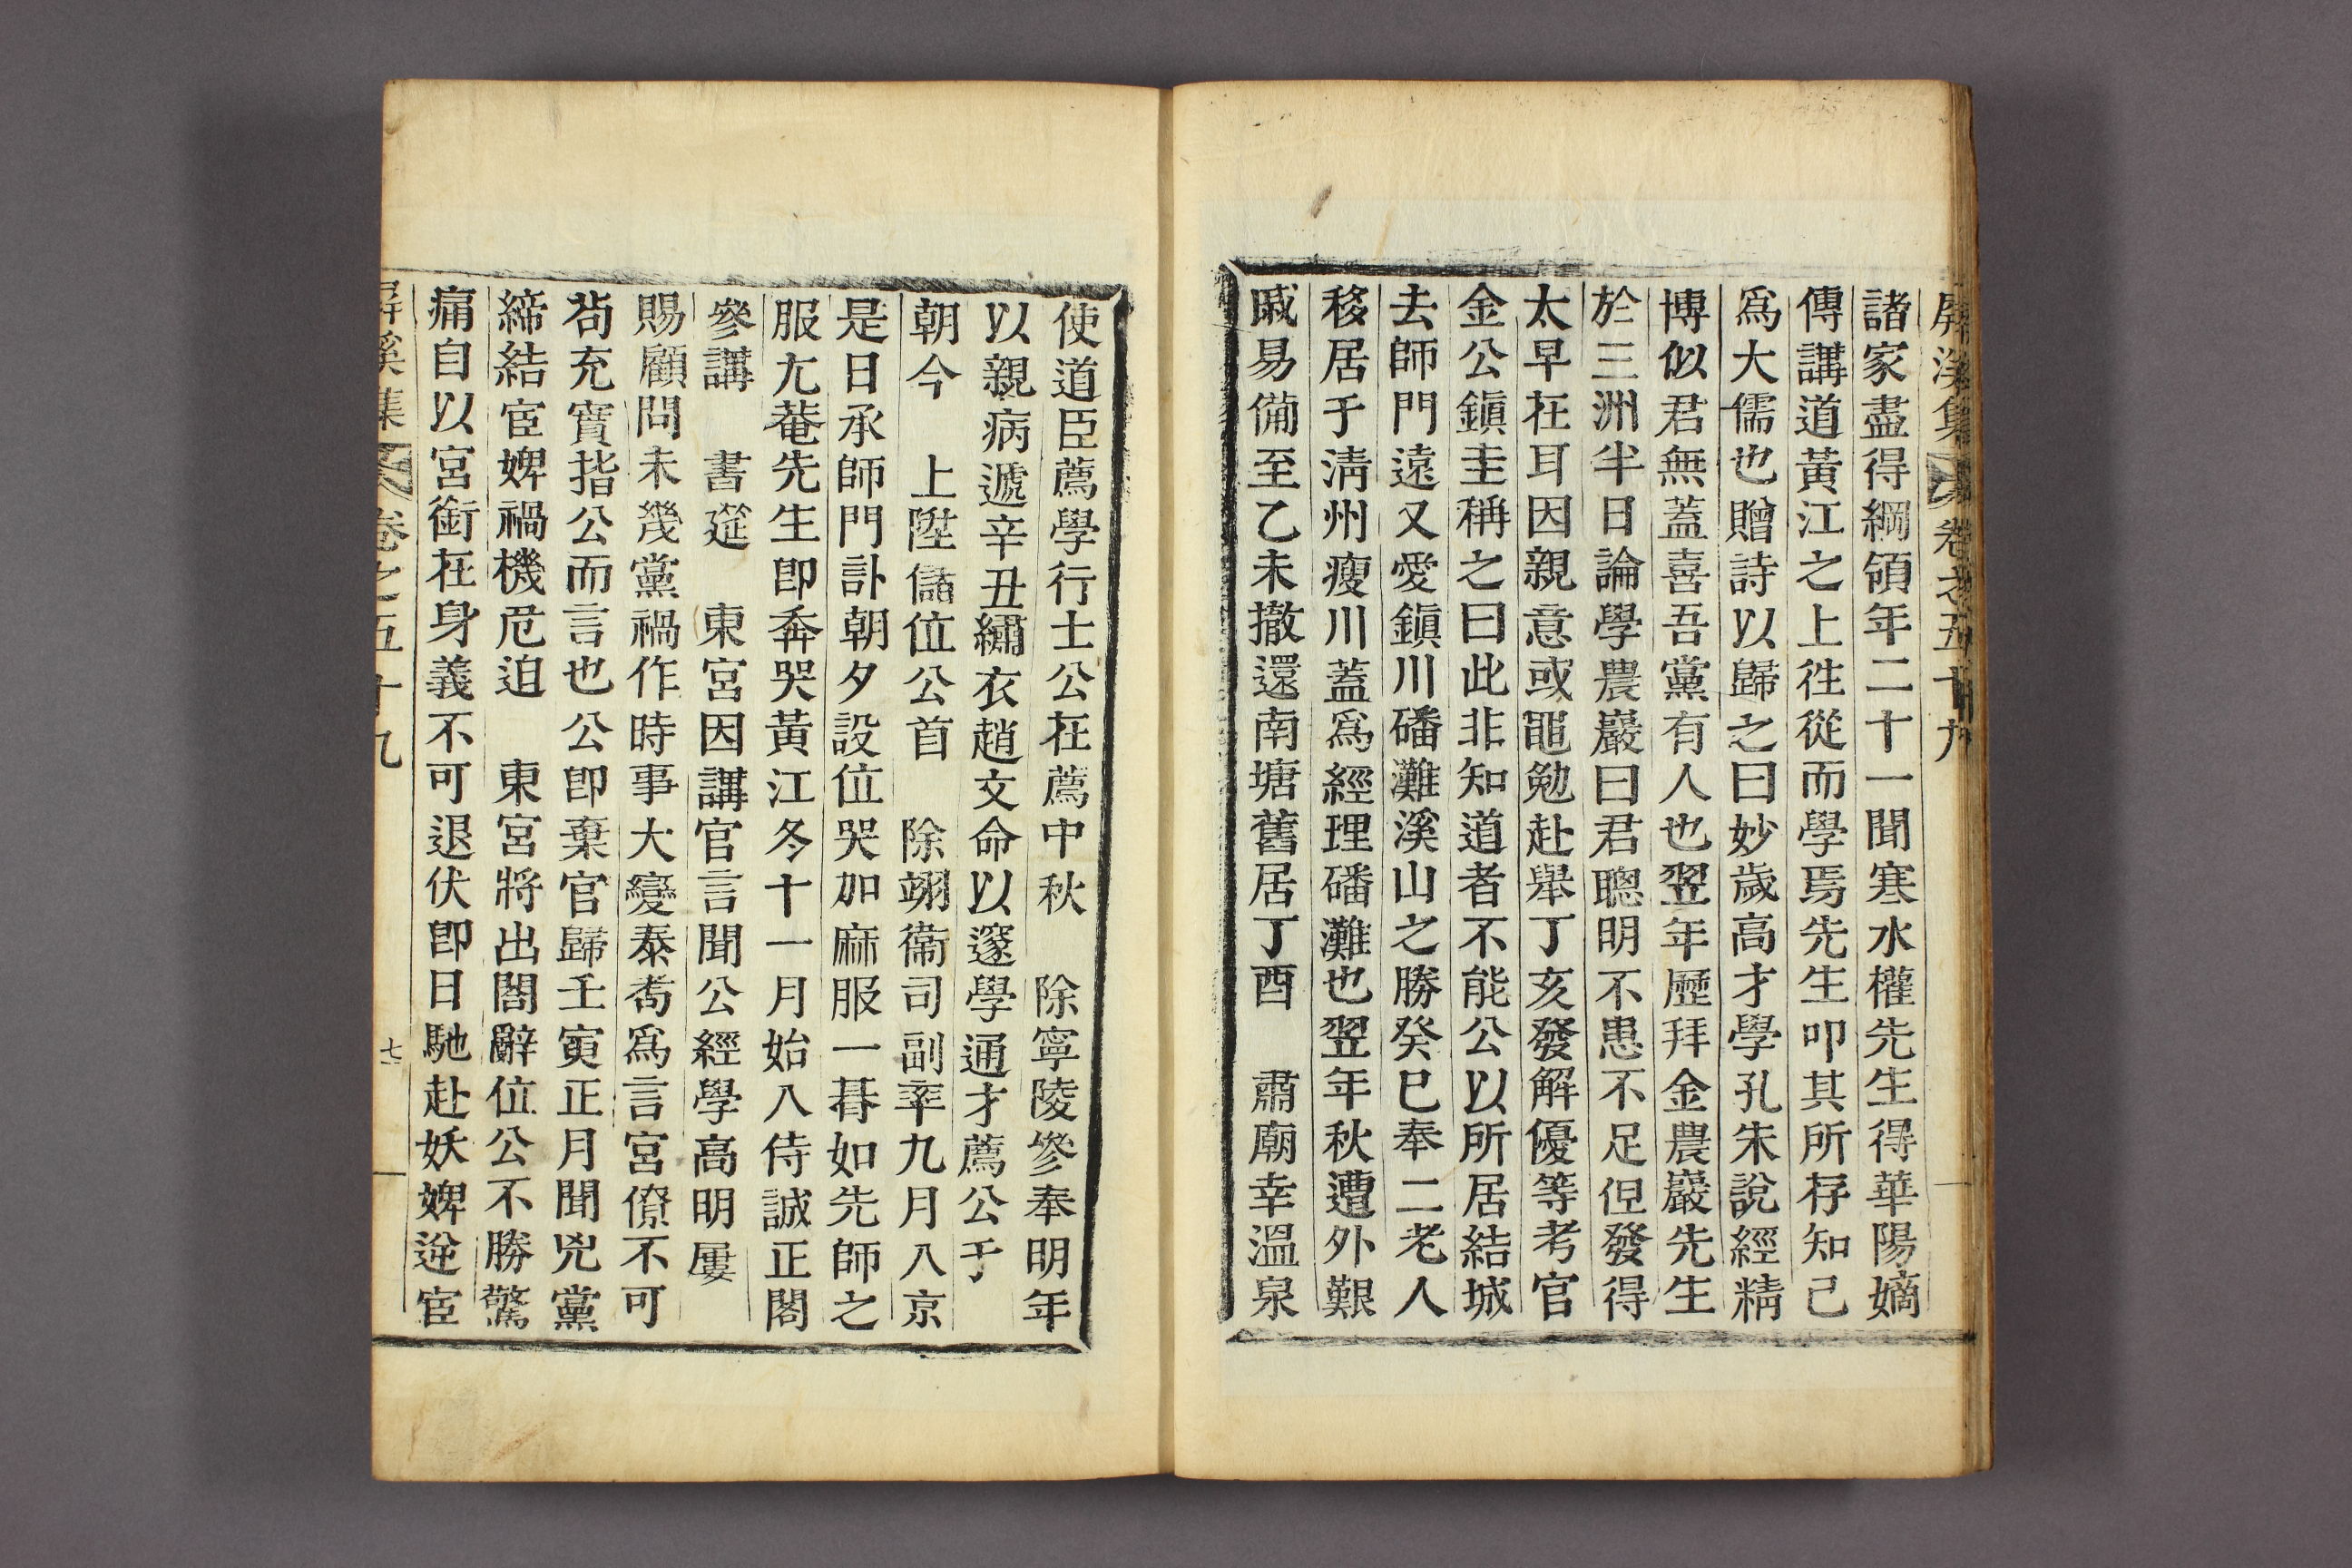 屛溪集 卷之五十九
諸家盡得綱領年二十一聞寒水權先生得華陽嫡
傳講道黃江之上徃從而學焉先生叩其所存知己
爲大儒也贈詩以歸之曰妙歲高才學孔朱說經精
博似君無蓋喜吾黨有人也翌年歷拜金農巖先生
於三洲半日論學農巖曰君聰明不患不足但發得
太早在耳因親意或黽勉赴舉丁亥發解優等考官
金公鎭圭稱之曰此非知道者不能公以所居結城
去師門遠又愛鎭川磻灘溪山之勝癸巳奉二老人
移居于淸州瘦川蓋爲經理磻灘也翌年秋遭外艱
戚易備至乙未撤還南塘舊居丁酉 肅廟幸溫泉
使道臣薦學行士公在薦中秋 除寧陵參奉明年
以親病遞辛丑繡衣趙文命以邃學通才薦公于
朝今 上陞儲位公首 除翊衛司副率九月八京
是日承師門訃朝夕設位哭加麻服一朞如先師之
服尤菴先生卽奔哭黃江冬十一月始入侍誠正閤
參講 書筵 東宮因講官言聞公經學高明屢
賜顧問未幾黨禍作時事大變泰耉爲言宮僚不可
苟充實指公而言也公卽棄官歸壬寅正月聞兇黨
締結宦婢禍機危迫 東宮將出閤辭位公不勝驚
痛自以宮銜在身義不可退伏卽日馳赴妖婢逆宦
屛溪集 卷之五十九 七